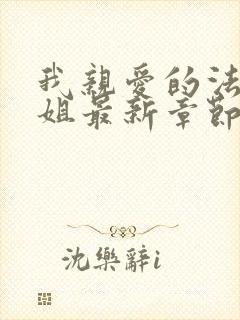 我親愛的法
姐最新章節
沈樂辭i